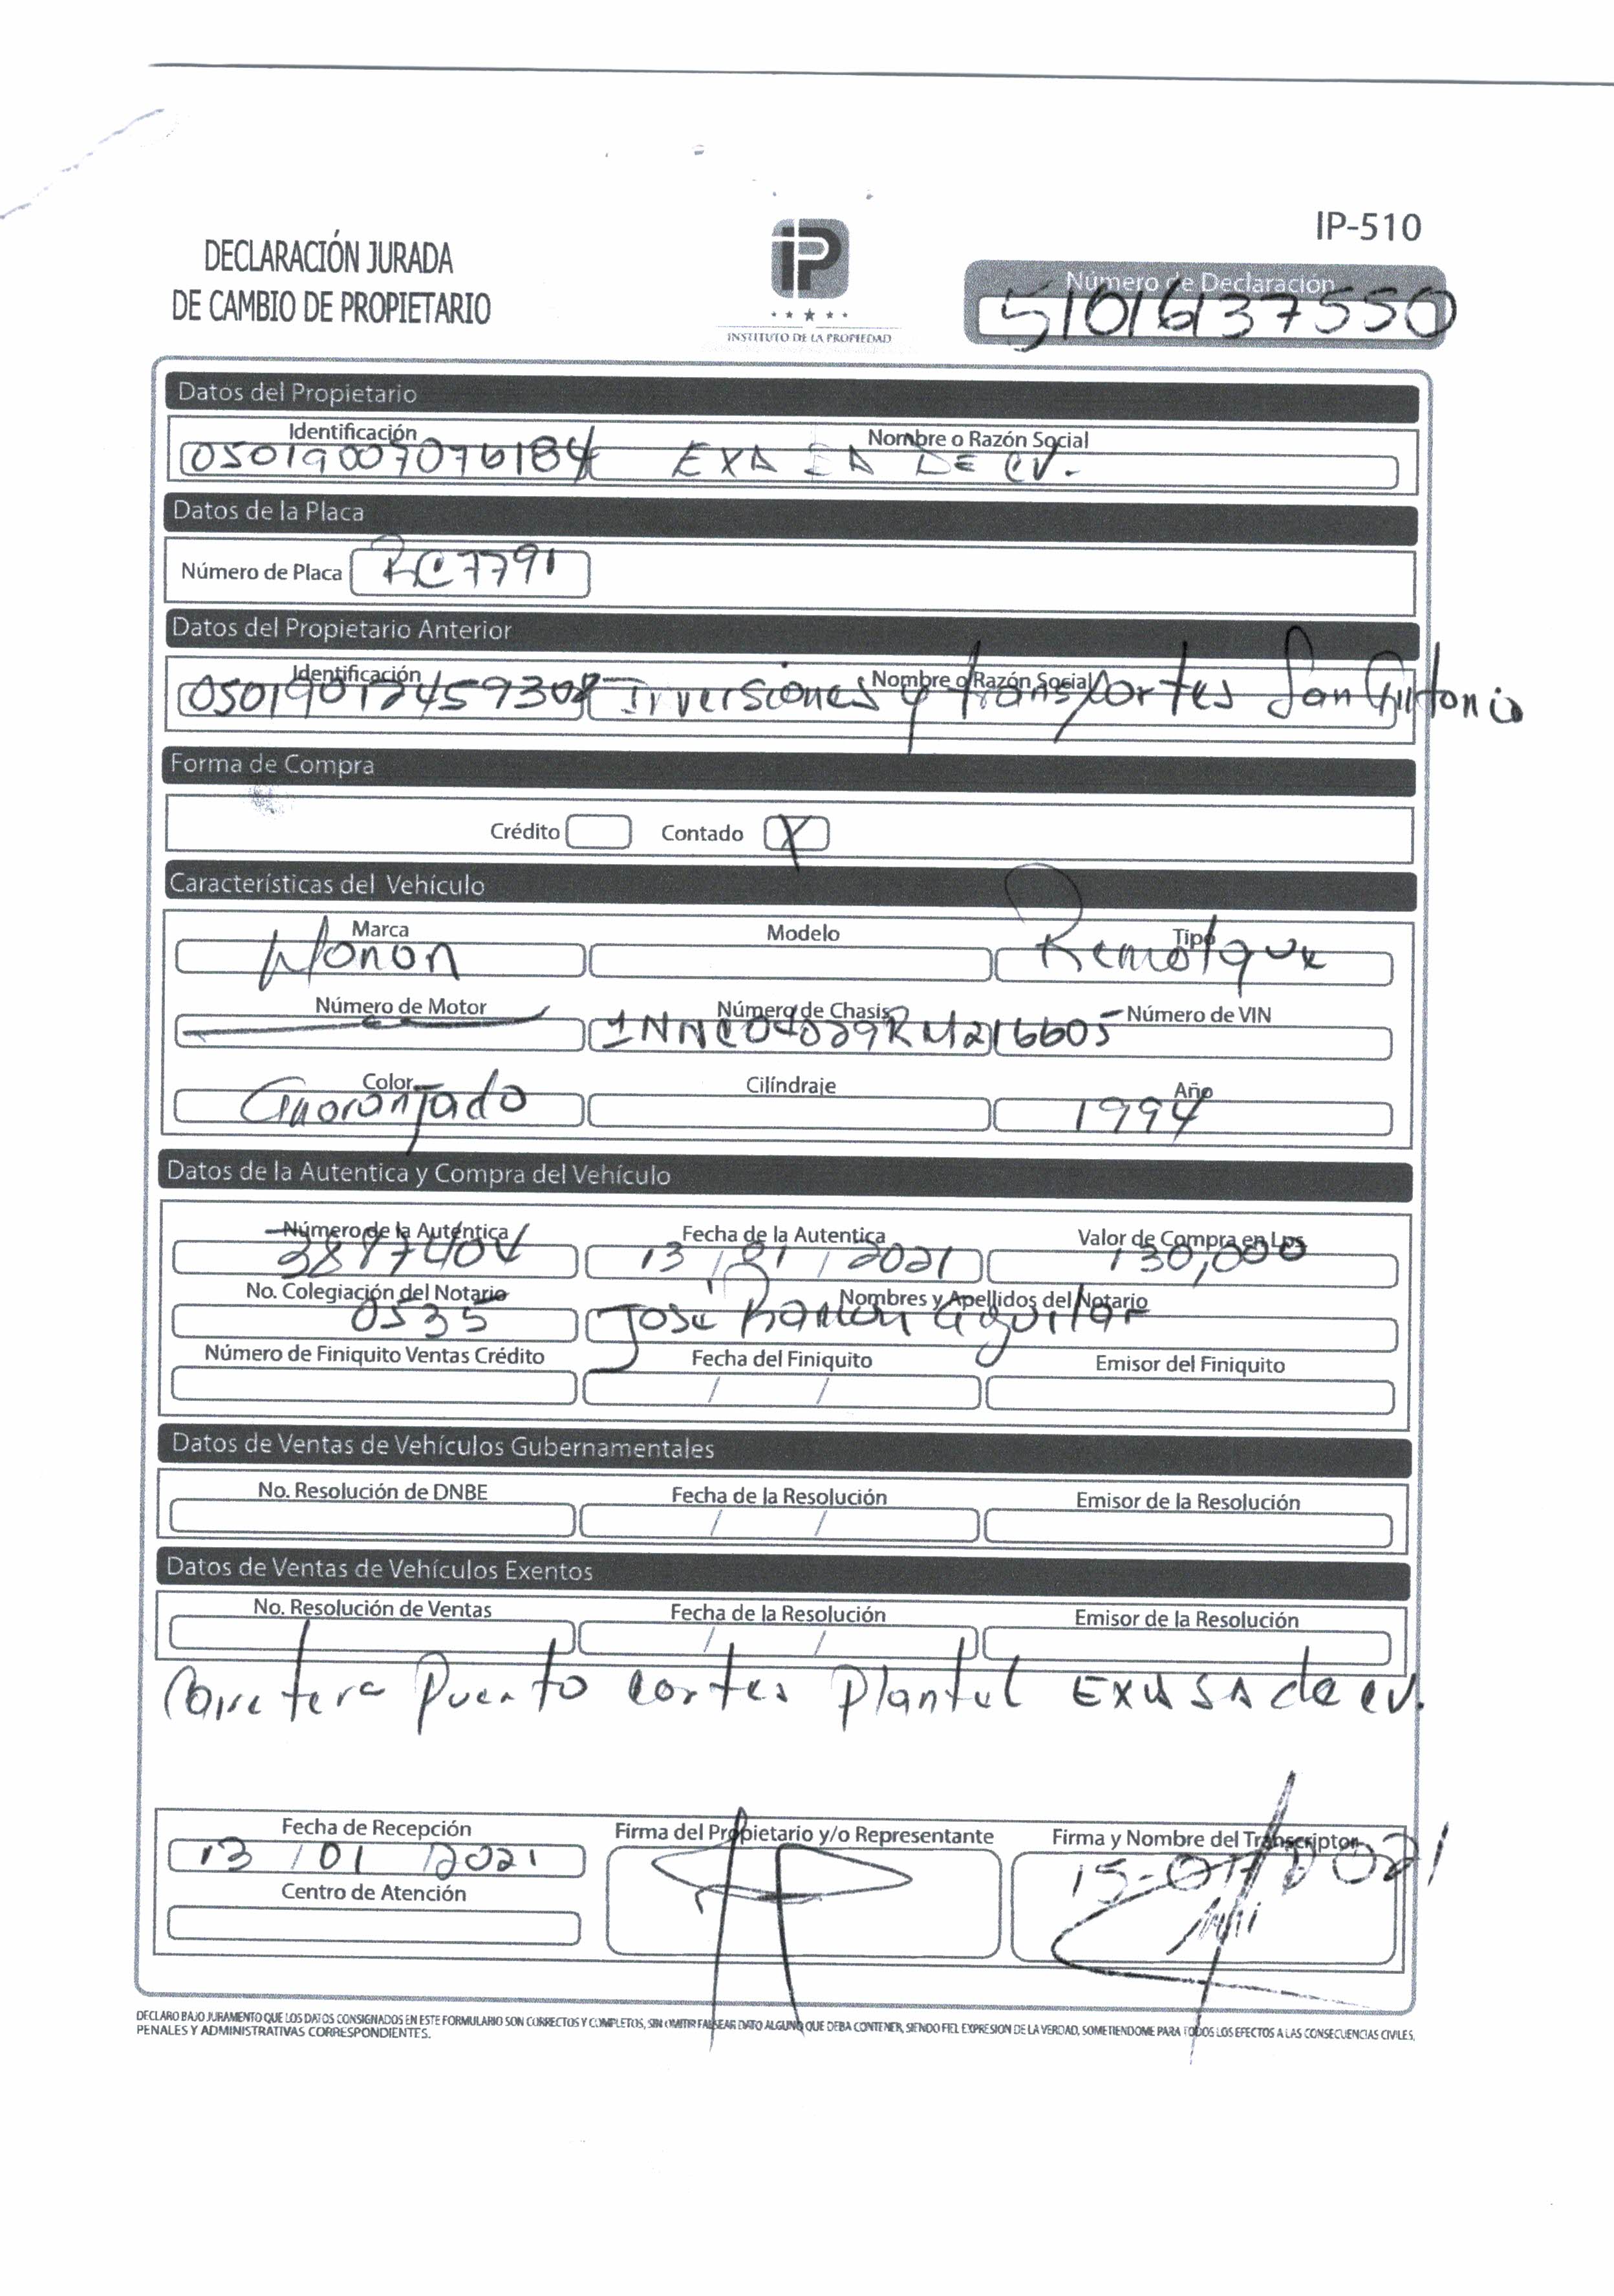 IP-510
DECLARACIÓN JURADA
DE CAMBIO DE PROPIETARIO
iP
INSTITUTO DE LA PROPIEDAD
Número de Declaración
5101637550
Datos del Propietario
Identificación Nombre o Razón Social
05019007076184 EXA SA DE CV.
Datos de la Placa
Número de Placa RC7791
Datos del Propietario Anterior
Identificación Nombre o Razón Social
Inversiones y transportes San Antonio
Forma de Compra
Crédito Contado X
Características del Vehículo
Marca Modelo Tipo
Wonon Remolque
Número de Motor Número de Chasis Número de VIN
Color Cilíndraje Año
Anaranjado 1994
Datos de la Autentica y Compra del Vehículo
Número de la Auténtica Fecha de la Autentica Valor de Compra en Lps
13 / 01 / 2021 130,000
No. Colegiación del Notario Nombres y Apellidos del Notario
0535 José Ramón Aguilar
Número de Finiquito Ventas Crédito Fecha del Finiquito Emisor del Finiquito
/ /
Datos de Ventas de Vehículos Gubernamentales
No. Resolución de DNBE Fecha de la Resolución Emisor de la Resolución
/ /
Datos de Ventas de Vehículos Exentos
No. Resolución de Ventas Fecha de la Resolución Emisor de la Resolución
/ /
Carretera Puerto cortes Plantel EXA SA de CV.
Fecha de Recepción Firma del Propietario y/o Representante Firma y Nombre del Transcriptor
13 / 01 / 2021 15-01-2021
Centro de Atención
DECLARO BAJO JURAMENTO QUE LOS DATOS CONSIGNADOS EN ESTE FORMULARIO SON CORRECTOS Y COMPLETOS, SIN OMITIR FALSEAR DATO ALGUNO QUE DEBA CONTENER, SIENDO FIEL EXPRESION DE LA VERDAD, SOMETIENDOME PARA TODOS LOS EFECTOS A LAS CONSECUENCIAS CIVILES,
PENALES Y ADMINISTRATIVAS CORRESPONDIENTES.